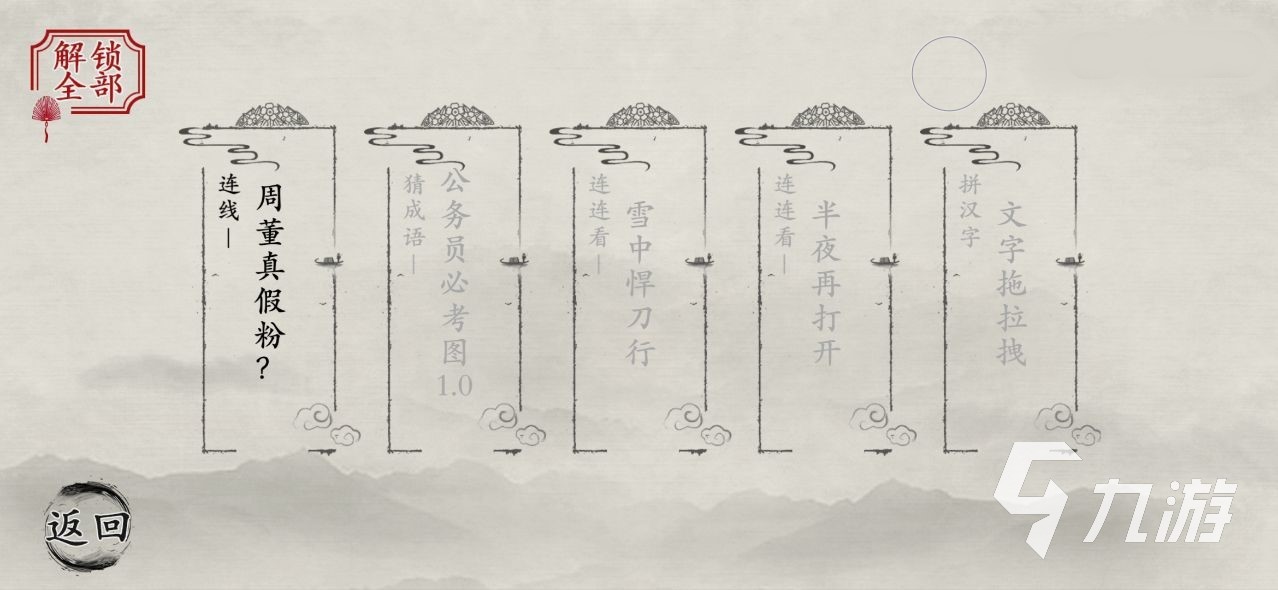 解锁
全部
连线—
周董真假粉？
猜成语—
公务员必考图1.0
连连看—
雪中悍刀行
连连看—
半夜再打开
拼汉字
文字拖拉拽
返回
九游